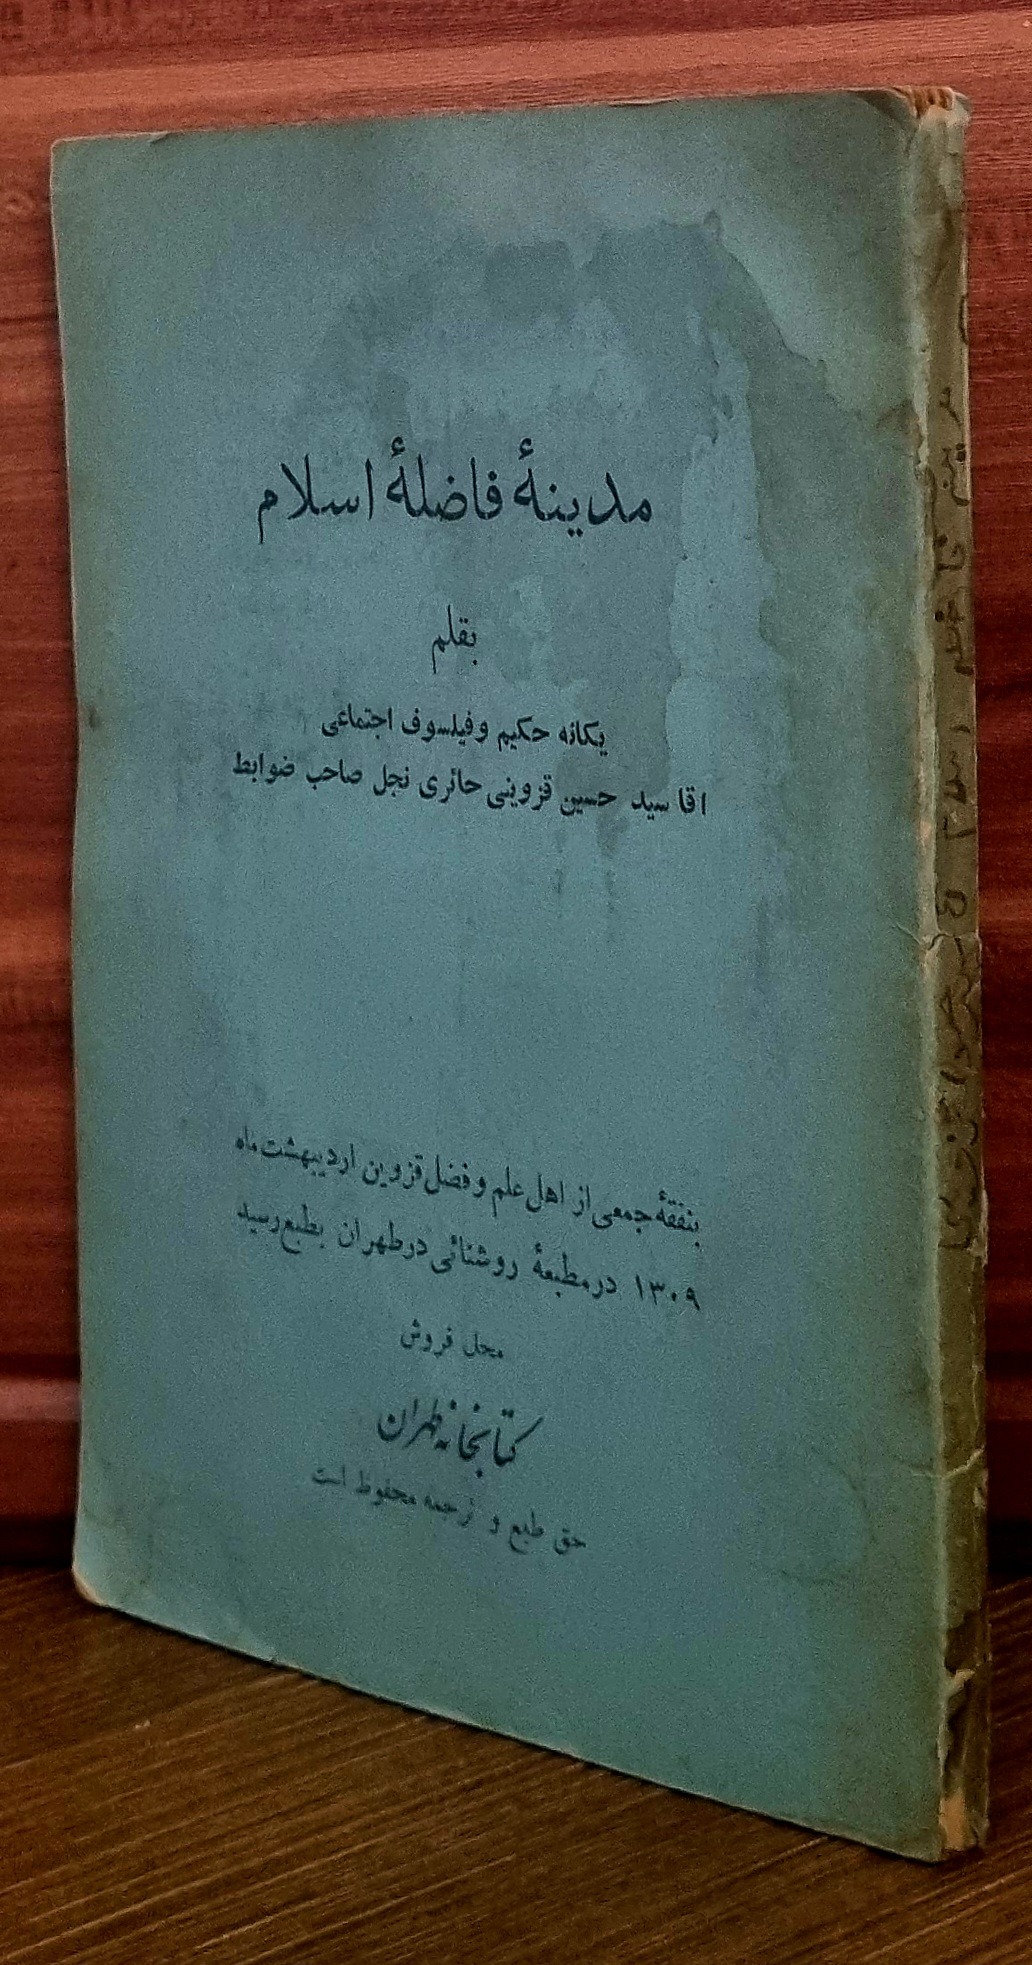 مدینهٔ فاضلهٔ اسلام
بقلم
یکانه حکیم و فیلسوف اجتماعی
اقا سید حسین قزوینی حائری نجل صاحب ضوابط
بنفقهٔ جمعی از اهل علم و فضل قزوین اردیبهشت ماه
۱۳۰۹ در مطبعهٔ روشنائی در طهران بطبع رسید
محل فروش
کتابخانه طهران
حق طبع و ترجمه محفوظ است